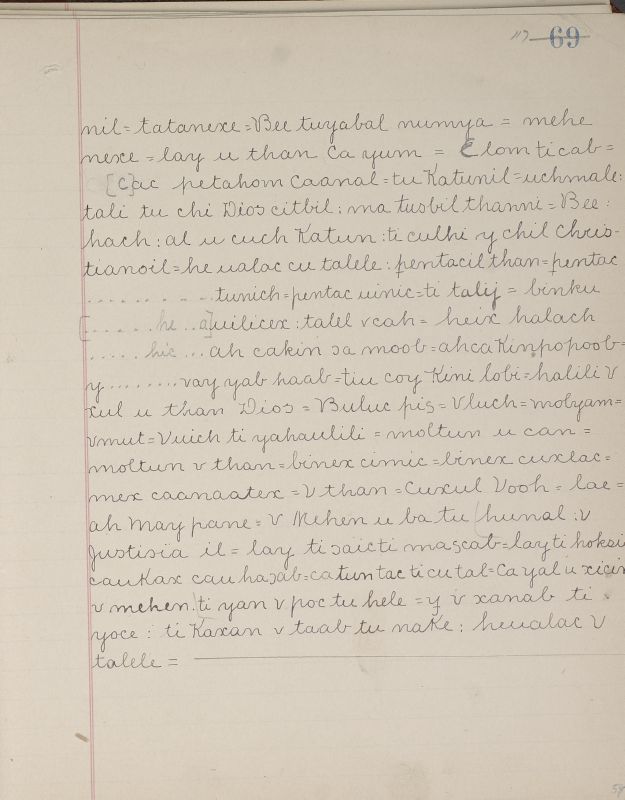 117 69
nil = tatanexe = Bee tuyabal numya = mehe
nexe = lay u than ca yum = Elom ti cab =
[c]ac petahom caanal = tu Katunil = uchmale:
tali tu chi Dios citbil: ma tusbil thanni = Bee:
hach: al u cuch Katun: ti culhi y chil Chris-
tianoil = he ualac cu talele: pentacil than = pentac
. . . . . . . . . . tunich = pentac uinic = ti talij = binku
[. . . . . he . . a]uilicex: talel v cah = heix halach
. . . . . hic . . . ah cakin sa moob = ahca Kinpopoob =
y . . . . . . . . vay yab haab = tiu coy Kini lobi = halili v
xul u than Dios = Buluc pis = Vluch = molyam =
vmut = Vuich ti yahaulili = moltun u can =
moltun v than = binex cimic = binex cuxlac =
mex caanaatex = V than = Cuxul Vooh = lae =
ah may pane = V Mehen u ba tu hunal: v
Justisia il = lay ti saicti mascab = lay ti hoksi
cau Kax cau hasab = ca tun tac ti cu tal = Ca yal u xicin
v mehen. ti yan v poc tu hele = y v xanab ti
yoce: ti Kaxan v taab tu naKe: heualac V
talele =